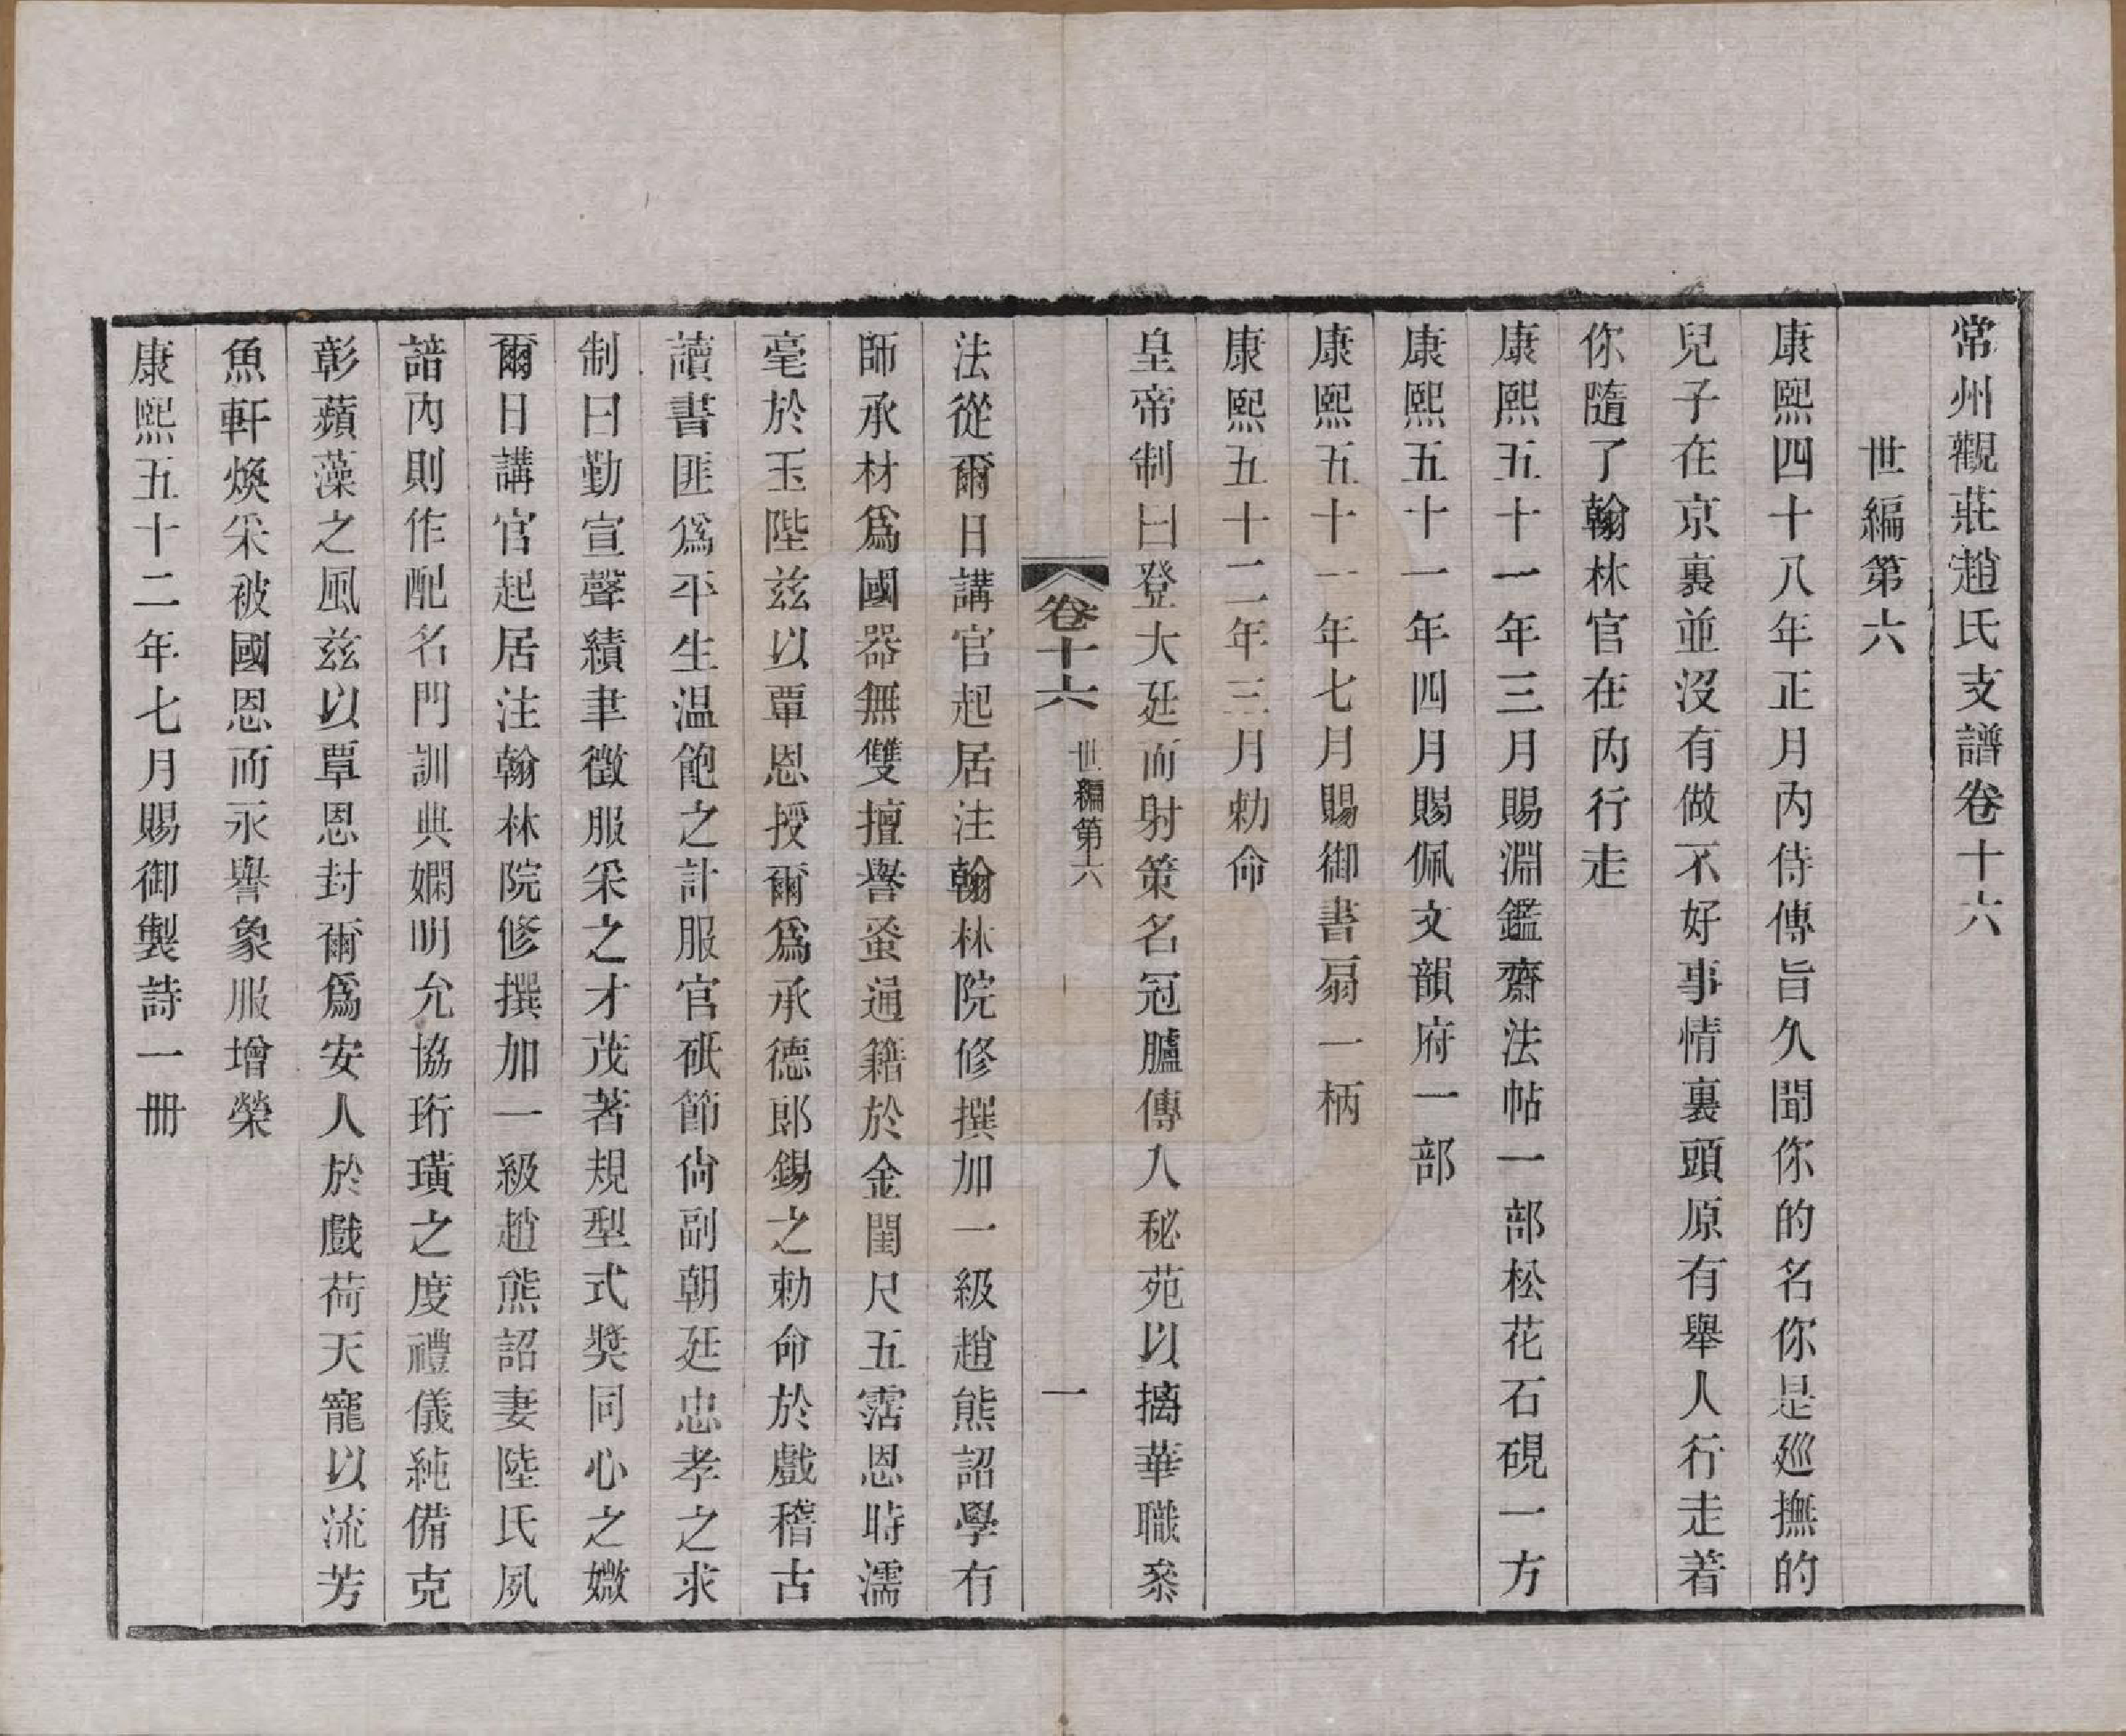 常州觀莊趙氏支譜卷十六
世編第六
康熙四十八年正月內侍傳旨久聞你的名你是廵撫的
兒子在京裏並沒有做不好事情裏頭原有舉人行走着
你隨了翰林官在內行走
康熙五十一年三月賜淵鑑齋法帖一部松花石硯一方
康熙五十一年四月賜佩文韻府一部
康熙五十一年七月賜御書扇一柄
康熙五十二年三月勅命
皇帝制曰登大廷而射策名冠臚傳入秘苑以摛華職叅
卷十六
世編第六
一
法從爾日講官起居注翰林院修撰加一級趙熊詔學有
師承材爲國器無雙擅譽蚤通籍於金閨尺五霑恩時濡
毫於玉陛茲以覃恩授爾爲承德郎錫之勅命於戲稽古
讀書匪爲平生温飽之計服官砥節尙副朝廷忠孝之求
制曰勤宣聲績聿徵服采之才茂著規型式奬同心之媺
爾日講官起居注翰林院修撰加一級趙熊詔妻陸氏夙
諳內則作配名門訓典嫻明允協珩璜之度禮儀純備克
彰蘋藻之風茲以覃恩封爾爲安人於戲荷天寵以流芳
魚軒煥采被國恩而永譽象服增榮
康熙五十二年七月賜御製詩一冊